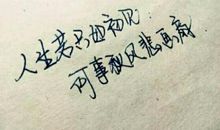 人生若只如初见
何事秋风悲画扇